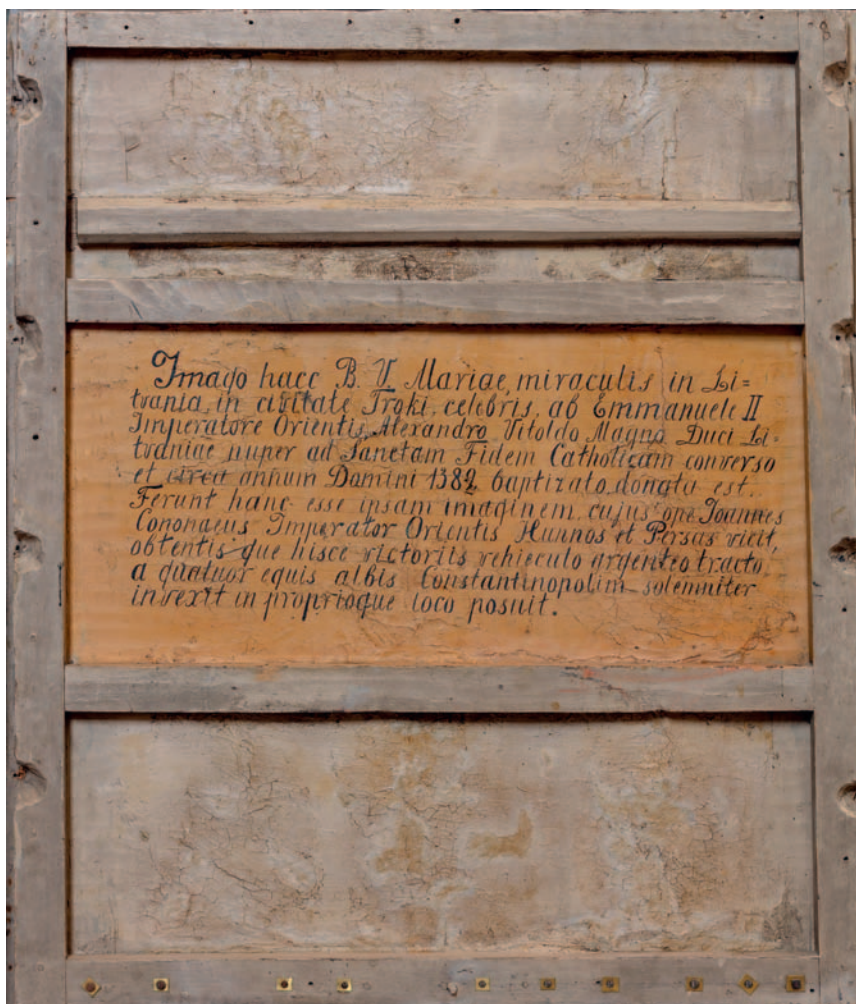 Imago haec B. V. Mariae, miraculis in Li=
tvania, in civitate Troki, celebris, ab Emmanuele II
Imperatore Orientis, Alexandro Vitoldo Magno Duci Li=
tvaniae nuper ad Sanctam Fidem Catholicam converso
et circa annum Domini 1382 baptizato, donata est.
Ferunt hanc esse ipsam imaginem, cujus ope Joannes
Cononaeus Imperator Orientis Hunnos et Persas vicit,
obtentis que hisce victoriis vehieculo argenteo tracto,
a quatuor equis albis Constantinopolim solemniter
invexit in proprioque loco posuit.
8